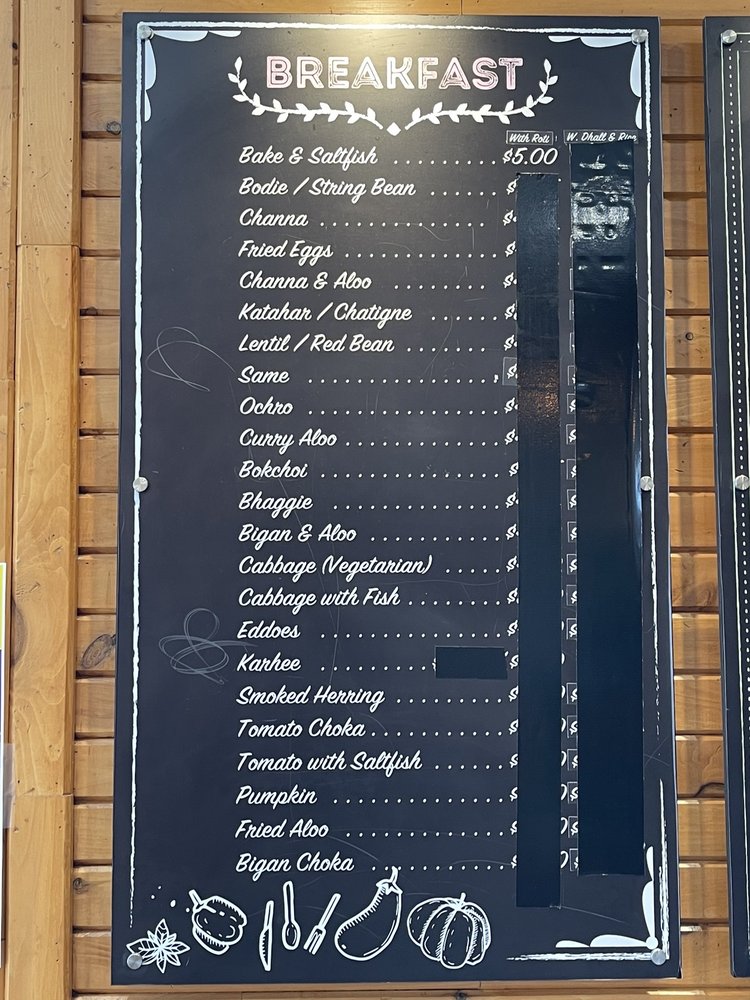 BREAKFAST
With Roti W. Dhall & Rice
Bake & Saltfish ........ $5.00
Bodie / String Bean ...... $
Channa ................ $
Fried Eggs .............. $
Channa & Aloo ........ $
Katahar / Chatigne ...... $
Lentil / Red Bean ........ $
Same ................ $ $
Ochro ................ $ $
Curry Aloo ............. $ $
Bokchoi .............. $ $
Bhaggie .............. $ $
Bigan & Aloo ........... $ $
Cabbage (Vegetarian) ..... $ $
Cabbage with Fish ........ $ $
Eddoes ............... $ $
Karhee ...........
Smoked Herring ......... $ $
Tomato Choka .......... $ $
Tomato with Saltfish ...... $ $
Pumpkin .............. $ $
Fried Aloo ............. $ $
Bigan Choka ........... $ $